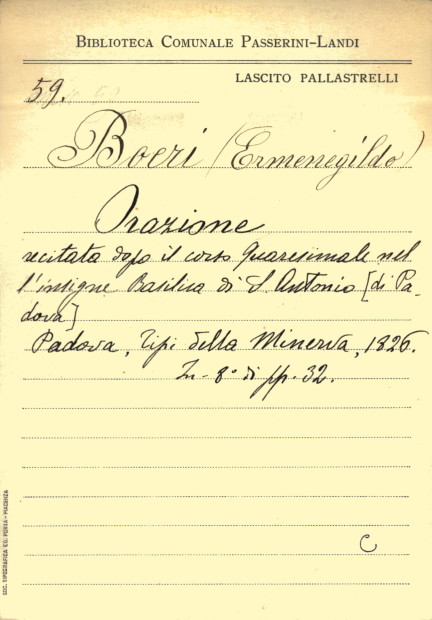 BIBLIOTECA COMUNALE PASSERINI-LANDI
LASCITO PALLASTRELLI
59.
Boeri (Ermenegildo)
Orazione
recitata dopo il corso Quaresimale nel
l'insigne Basilica di S. Antonio [di Pa-
dova]
Padova, Tipi della Minerva, 1826.
In-8° di pp. 32.
C
SOC. TIPOGRAFICA ED. PORTA - PIACENZA